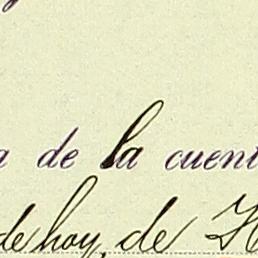 a de la cuent
de hoy, de H